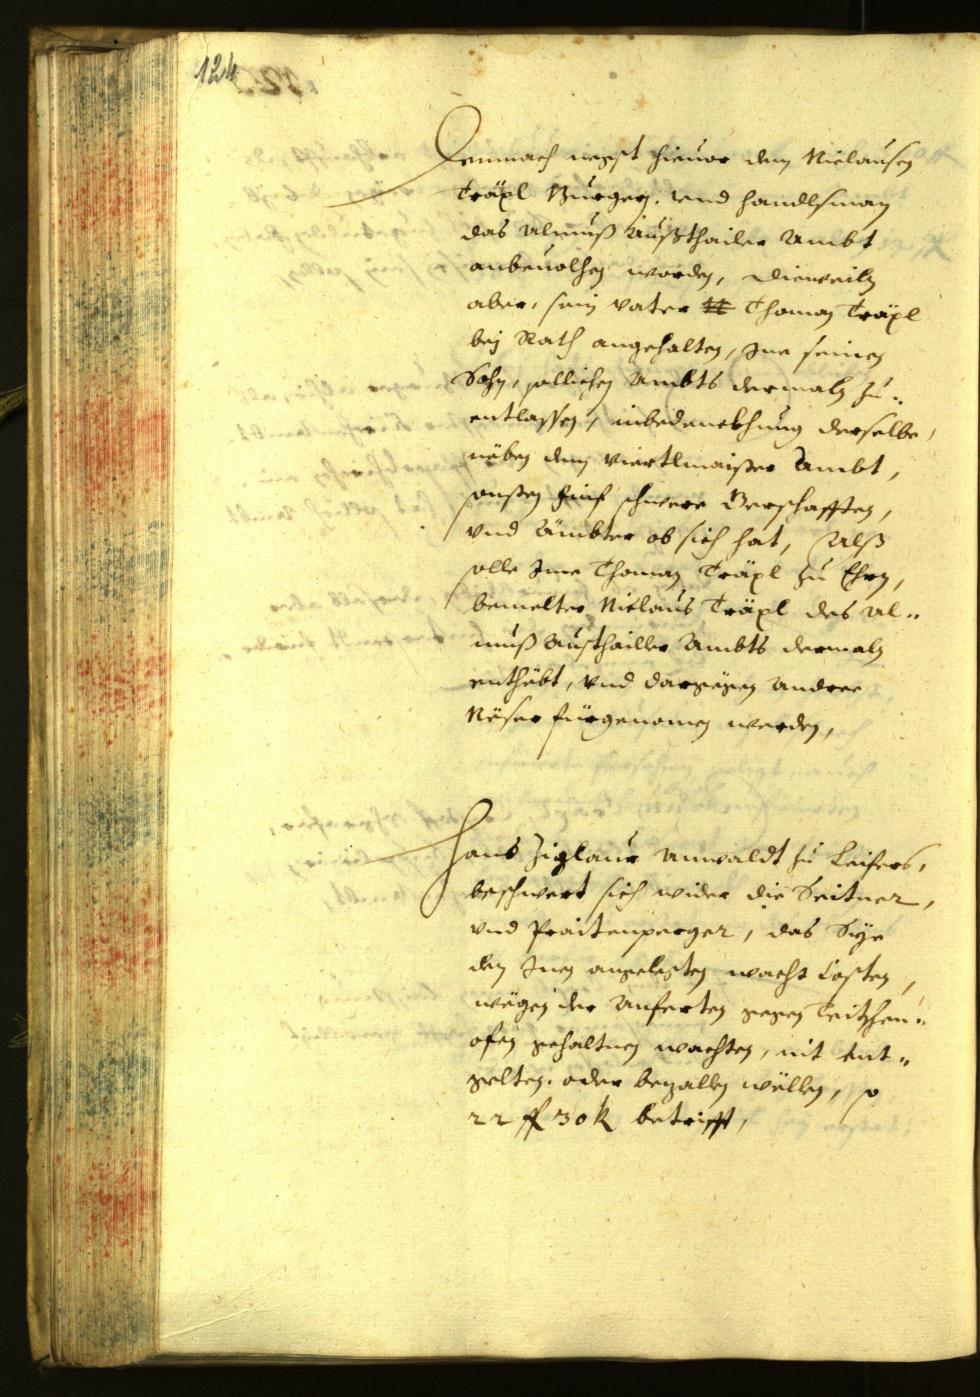 124
Demnach negst hieuor dem Niclausen
Träpl Burger. vnd handlsman
das Almuß Außthailer Ambt
anbeuolhen worden, Dieweiln
aber, sein vater H Thoman Träpl
bej Rath angehalten, Ine seinen
Sohn, sollichen Ambts dermaln zu„
entlassen, inbedenckhung derselbe,
neben dem Viertlmaister Ambt,
sonsten finf schwere Gerhafften,
vnd Ämbter ob sich hat, Alß
solle Ime Thoman Träpl zu Ehrn,
bemelter Niclaus Träpl des Al„
muß Austhailler Ambts dermaln
enthebt, vnd dargegen Andree
Neser fürgenomen werden,
Hans Ziglaur Anwaldt zu Leifers,
beschwert sich wider die Seitner,
vnd Praitenperger, das Sÿe
den Inen angelegten wacht Cossten,
wegen der Anferten gegen Teitschen„
ofen gehaltnen wachten, nit ent„
gelten. oder bezallen wellen, so
22 f 30 k betrifft,